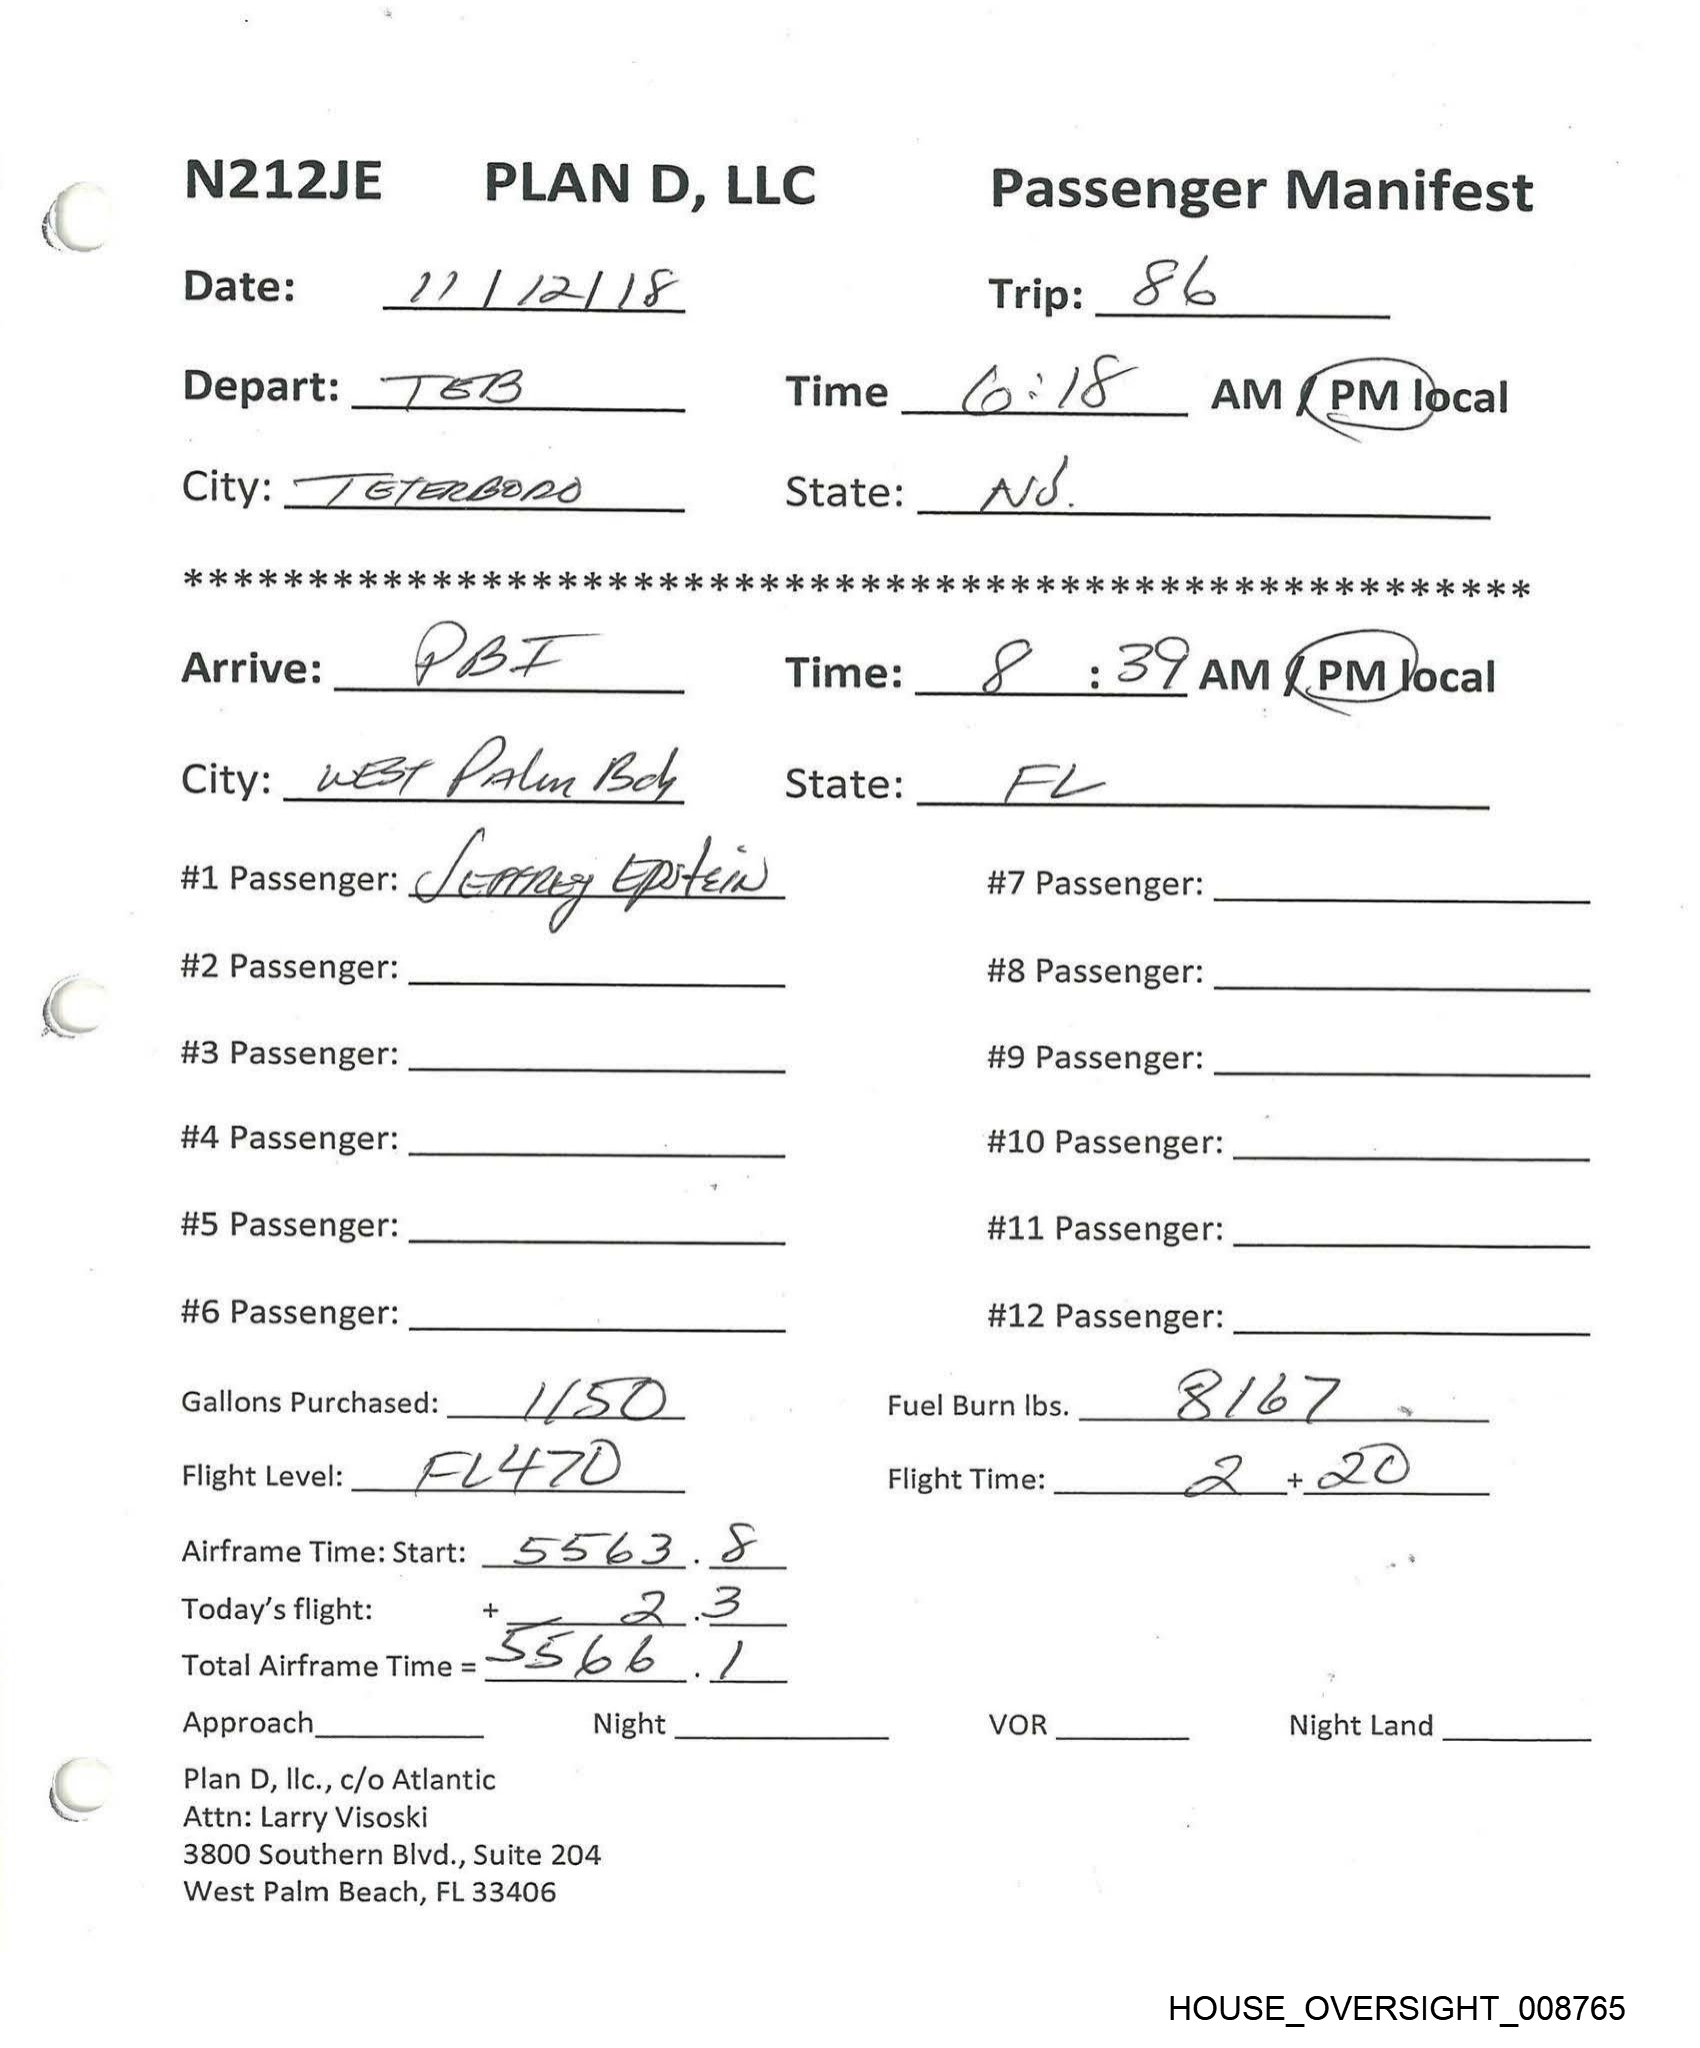 N212JE PLAN D, LLC Passenger Manifest
Date: 11/12/18 Trip: 86
Depart: TEB Time 6:18 AM / PM local
City: TETERBORO State: NJ.
******************************************************
Arrive: PBI Time: 8 : 39 AM / PM local
City: WEST Palm Bch State: FL
#1 Passenger: JEFFREY EpstEIN #7 Passenger:
#2 Passenger: #8 Passenger:
#3 Passenger: #9 Passenger:
#4 Passenger: #10 Passenger:
#5 Passenger: #11 Passenger:
#6 Passenger: #12 Passenger:
Gallons Purchased: 1150 Fuel Burn lbs. 8167
Flight Level: FL470 Flight Time: 2 + 20
Airframe Time: Start: 5563 . 8
Today's flight: + 2 . 3
Total Airframe Time = 5566 . 1
Approach Night VOR Night Land
Plan D, llc., c/o Atlantic
Attn: Larry Visoski
3800 Southern Blvd., Suite 204
West Palm Beach, FL 33406
HOUSE_OVERSIGHT_008765